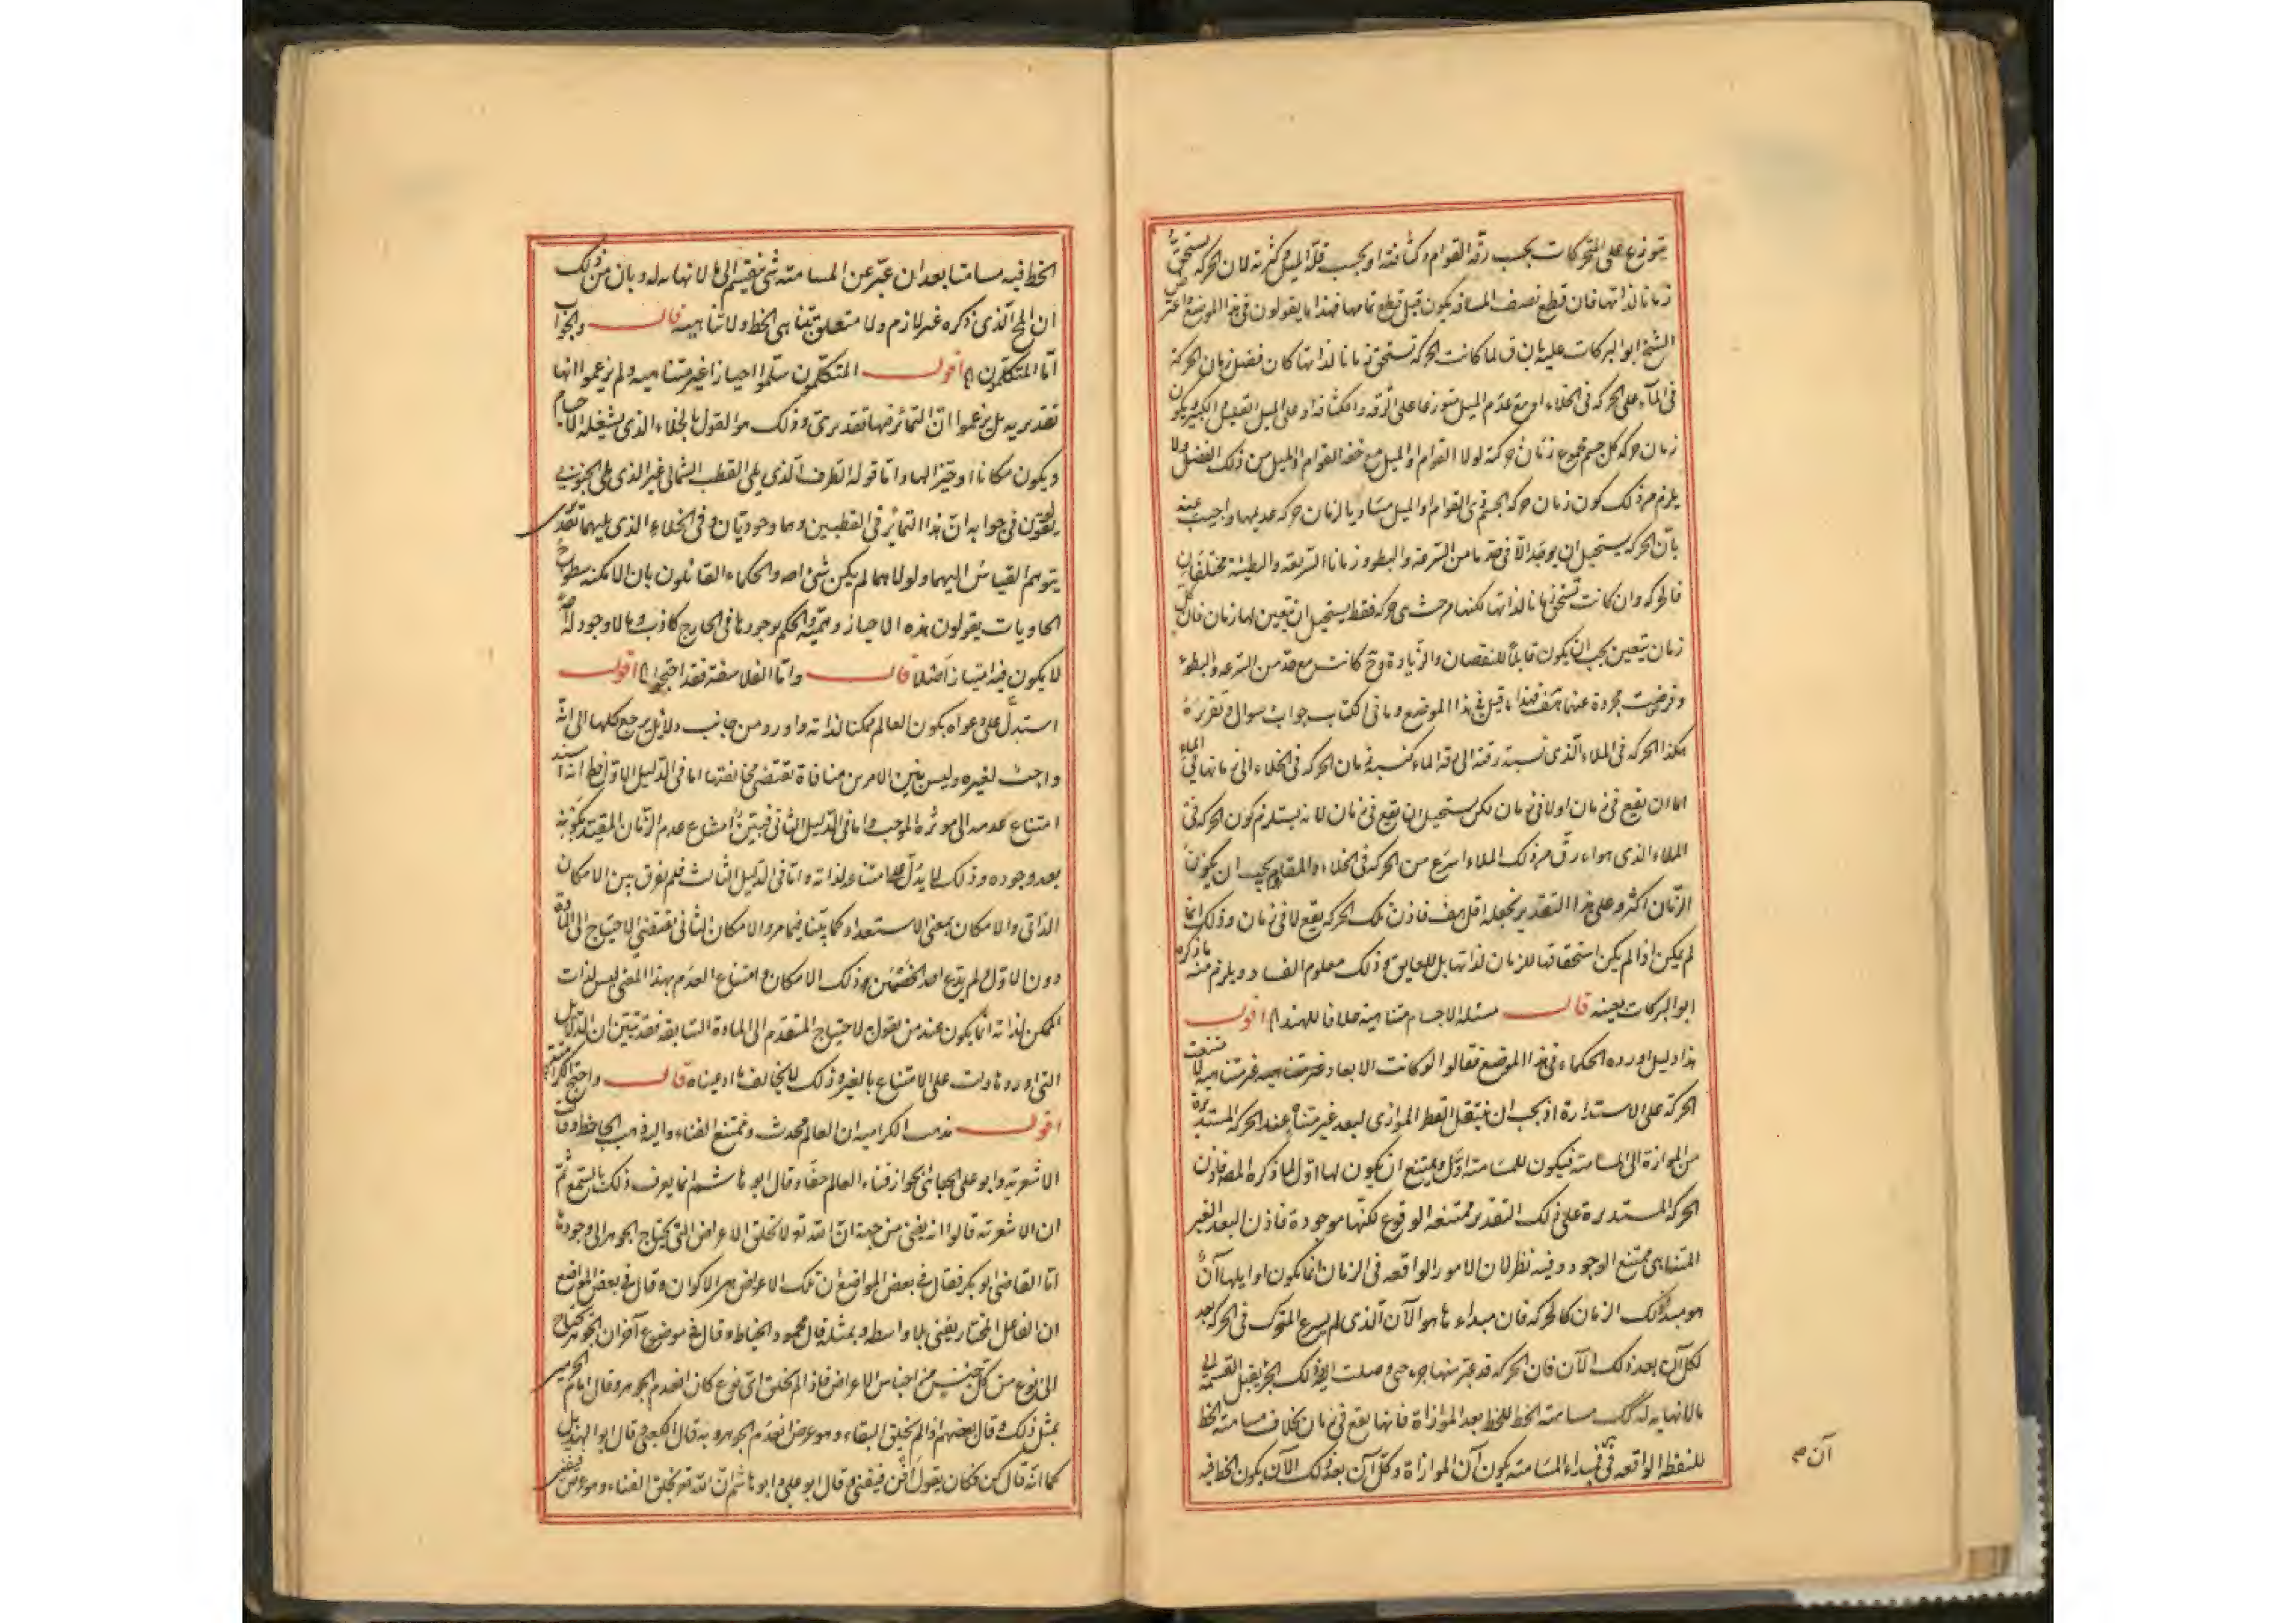 يتوزع على المتحركات بحسب رقة القوام وكثافته او بحسب قلة الميل وكثرته لان الحركة يستحق
زمانا لذاتها فان قطع نصف المسافة يكون قبل قطع تمامها فهذا ما يقولون فى هذا الموضع واعترض
الشيخ ابو البركات عليه بان ق لما كانت الحركة تستحق زمانا لذاتها كان فضل زمان الحركة
فى الملآء على الحركه فى الخلاء او مع عدم الميل متوزعا على الرقه والكثافة او على الميل القليل والكثير ويكون
زمان حركه كل جسم مجموع زمان حركته لولا القوام او الميل مع حصه القوام او الميل من ذلك الفضل ولا
يلزم من ذلك كون زمان حركه الجسم ذى القوام او الميل مساويا لزمان حركه عديمها واجيب عنه
بان الحركه يستحيل ان يوجد الا فى حد ما من السرعه والبطو وزمانا السريعه والبطيئة مختلفان
فالحركه وان كانت تستحق زمانا لذاتها لكنها من حيث هى حركه فقط يستحيل ان يتعين لها زمان فان كل
زمان يتعين يجب ان يكون قابلا للنقصان والزيادة وح كانت مع حد من السرعه والبطوء
وفرضت مجردة عنها هف فهذا ما قيل فى هذا الموضع وما فى الكتاب جواب سوال وتقريره
هكذا الحركه فى الملاء الذى نسبة رقته الى رقة الماء كنسبه زمان الحركه فى الخلاء الى زمانها فى الماء
اما ان يقع فى زمان اولا فى زمان لكن يستحيل ان يقع فى زمان لانه يستلزم كون الحركه فى
الملاء الذى هو ارق من ذلك الملاء اسرع من الحركه فى الخلاء والمقاوم يجب ان يكون
الزمان اكثر وعلى هذا التقدير نجعله اقل هف فاذن تلك الحركه يقع لا فى زمان وذلك انما
لم يمكن اذا لم يكن استحقاقها للزمان لذاتها بل للعايق وذلك معلوم الفساد ويلزم منه ما ذكره
ابو البركات بعينه قال مسئله الاجسام متناهية خلافا للهند الخ اقول
هذا دليل اورده الحكماء فى هذا الموضع فقالوا لو كانت الابعاد غير متناهيه لامتنعت
الحركة على الاستدارة اذ يجب ان ينتقل القطر الموازى لبعد غير متناه عند الحركه المستديرة
من الموازاة الى المسامته فيكون للمسامته اول ويمتنع ان يكون لها اول لما ذكره المصه فاذن
الحركه المستديرة على ذلك التقدير ممتنعه الوقوع لكنها موجودة فاذن البعد الغير
المتناهى ممتنع الوجود وفيه نظر لان الامور الواقعه فى الزمان انما يكون اوايلها آن
هو مبدء ذلك الزمان كالحركه فان مبداء ها هو الآن الذى لم يسرع المتحرك فى الحركه بعد
لكل آن بعد ذلك الآن فان الحركه قد عبر منها جزء حتى وصلت اليه وذلك الجزء يقبل القسمة الى
مالانهايه له كك مسامته الخط للخط بعد الموازاة فانها يقع فى زمان بخلاف مسامته الخط
للنقطه الواقعه فى آن فمبداء المسامته يكون آن الموازاة وكل آن بعد ذلك الآن يكون الخط فيه
آن ص
الخط فيه مسامتا بعد ان عبر عن المسامته شى ينقسم الى ما لا نهايه له وبان من ذلك
ان المح الذى ذكره غير لازم ولا متعلق بتناهى الخط ولا تناهيه قال والجواب
اما المتكلمون الخ اقول المتكلمون سلموا احيازا غير متناهيه ولم يزعموا انها
تقديريه بل يزعموا ان التمائز فيها تقديرى وذلك هو القول بالخلاء الذى يشغله الاجسام
ويكون مكانا او حيزا لها واما قوله الطرف الذى يلى القطب الشمالى غير الذى يلى الجنوبى
يقولون فى جوابه ان هذا التمائز فى القطبين وهما وجوديان وفى الخلاء الذى يليهما تقديرى
يتوهم القياس اليهما ولولاهما لم يكن شى اصه والحكماء القائلون بان الامكنه سطوح
الحاويات يقولون هذه الاحياز وهميه والحكم بوجودها فى الخارج كاذب وما لا وجود له اصلا
لا يكون فيه امتياز اصلا قال واما الفلاسفة فقد احتجوا الخ اقول
استدل على دعواه بكون العالم ممكنا لذاته واورد من جانب دلائل يرجع كلها الى انه
واجب لغيره وليس بين الامرين منافاة تقتضى مخالفتها اما فى الدليل الاول فظ انه اسند
امتناع عدمه الى موثره الموجب واما فى الدليل الثانى فبين امتناع عدم الزمان المقيد بكونه
بعد وجوده وذلك لا يدل على امتناعه لذاته واما فى الدليل الثالث فلم يفرق بين الامكان
الذاتى والامكان بمعنى الاستعداد كما بينا فيما مر والامكان الثانى يقتضى الاحتياج الى المادة
دون الاول ولم يدع احد الخصمين ذلك الامكان وامتناع العدم بهذا المعنى ليس لذات
الممكن لذاته انما يكون عند من يقول لاحتياج المتقدم الى المادة السابقه فقد تبين ان الدلائل
التى اوردها دلت على الامتناع بالغير وذلك لا يخالف ما ادعيناه قال واحتج الكراميه
اقول مذهب الكراميه ان العالم محدث وممتنع الفناء واليه ذهب الجاحظ وقالت
الاشعريه وابو على الجبائى بجواز فناء العالم عقلا وقال ابو هاشم انما يعرف ذلك بالسمع ثم
ان الاشعريه قالوا انه يفنى من جهة ان الله تع لا تخلق الاعراض التى يحتاج الجوهر الى وجوده
اما القاضى ابو بكر فقال فى بعض المواضع ان تلك الاعراض هى الاكوان وقال فى بعض المواضع
ان الفاعل المختار يفنى بلا واسطه وبمثله قال محمود الخياط وقال فى موضع آخر ان الجوهر يحتاج
الى نوع من كل جنس من اجناس الاعراض فاذا لم يخلق اى نوع كان انعدم الجوهر وقال امام الحرمين
بمثل ذلك وقال بعضهم اذا لم يخلق البقاء وهو عرض انعدم الجوهر وبه قال الكعبى وقال ابو الهذيل
كما انه قال كن فكان يقول افن فيفنى وقال ابو على وابو هاشم ان الله تع يخلق الفناء وهو عرض فيفنى